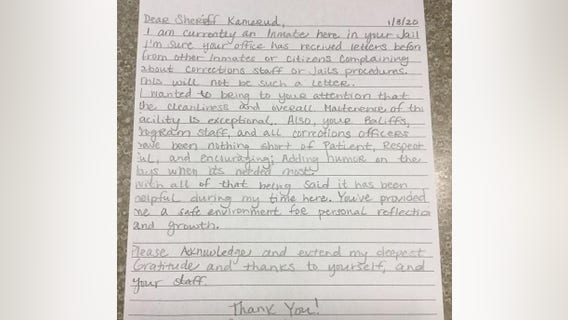 Dear Sheriff Kamerud, 1/8/20
I am currently an Inmate here in your Jail
I'm sure your office has received letters befor
from other Inmates or Citizens Complaining
about corrections staff or Jails procedures.
This will not be such a letter.
I wanted to being to your attention that
the cleanliness and overall Maitenence of thi
acility is exceptional. Also, your Baliffs,
rogram staff, and all corrections officers
have been nothing short of Patient, Respect
ful, and encouraging; Adding humor on the
days when its needed most.
with all of that being said it has been
helpful during my time here. You've provided
me a safe environment for personal reflection
and growth.
Please Acknowledge and extend my deepest
Gratitude and thanks to yourself, and
your staff.
Thank You!